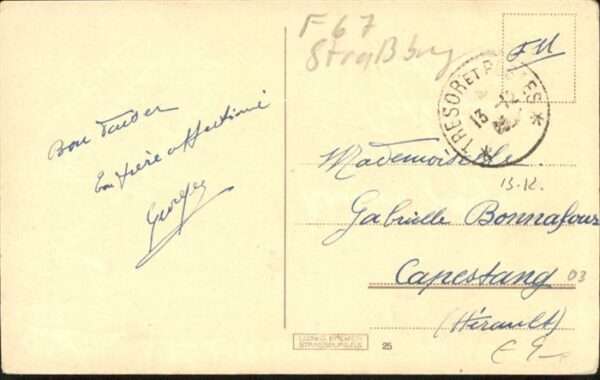 F 67
Straßburg
FM
TRESOR ET POSTES
13
Bon baiser
Ton frère affectionné
Georges
Mademoiselle
B.-R.
Gabrielle Bonnafour
Capestang
03
(Hérault)
STRASBOURG
25